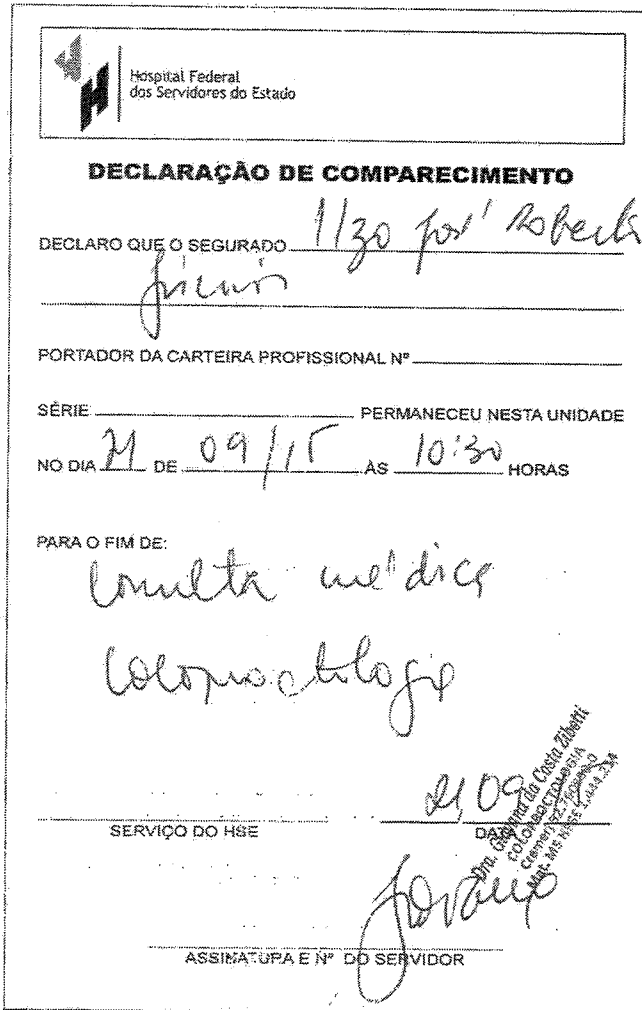 Hospital Federal
dos Servidores do Estado
DECLARAÇÃO DE COMPARECIMENTO
DECLARO QUE O SEGURADO Ilzo José Roberto
PORTADOR DA CARTEIRA PROFISSIONAL Nº
SÉRIE PERMANECEU NESTA UNIDADE
NO DIA 21 DE 09/15 ÀS 10:30 HORAS
PARA O FIM DE:
Consulta médica
Coloproctologia
21/09
SERVIÇO DO HSE DATA
Dra. da Costa Zibetti
COLOPROCTOLOGIA
ASSINATURA E Nº DO SERVIDOR